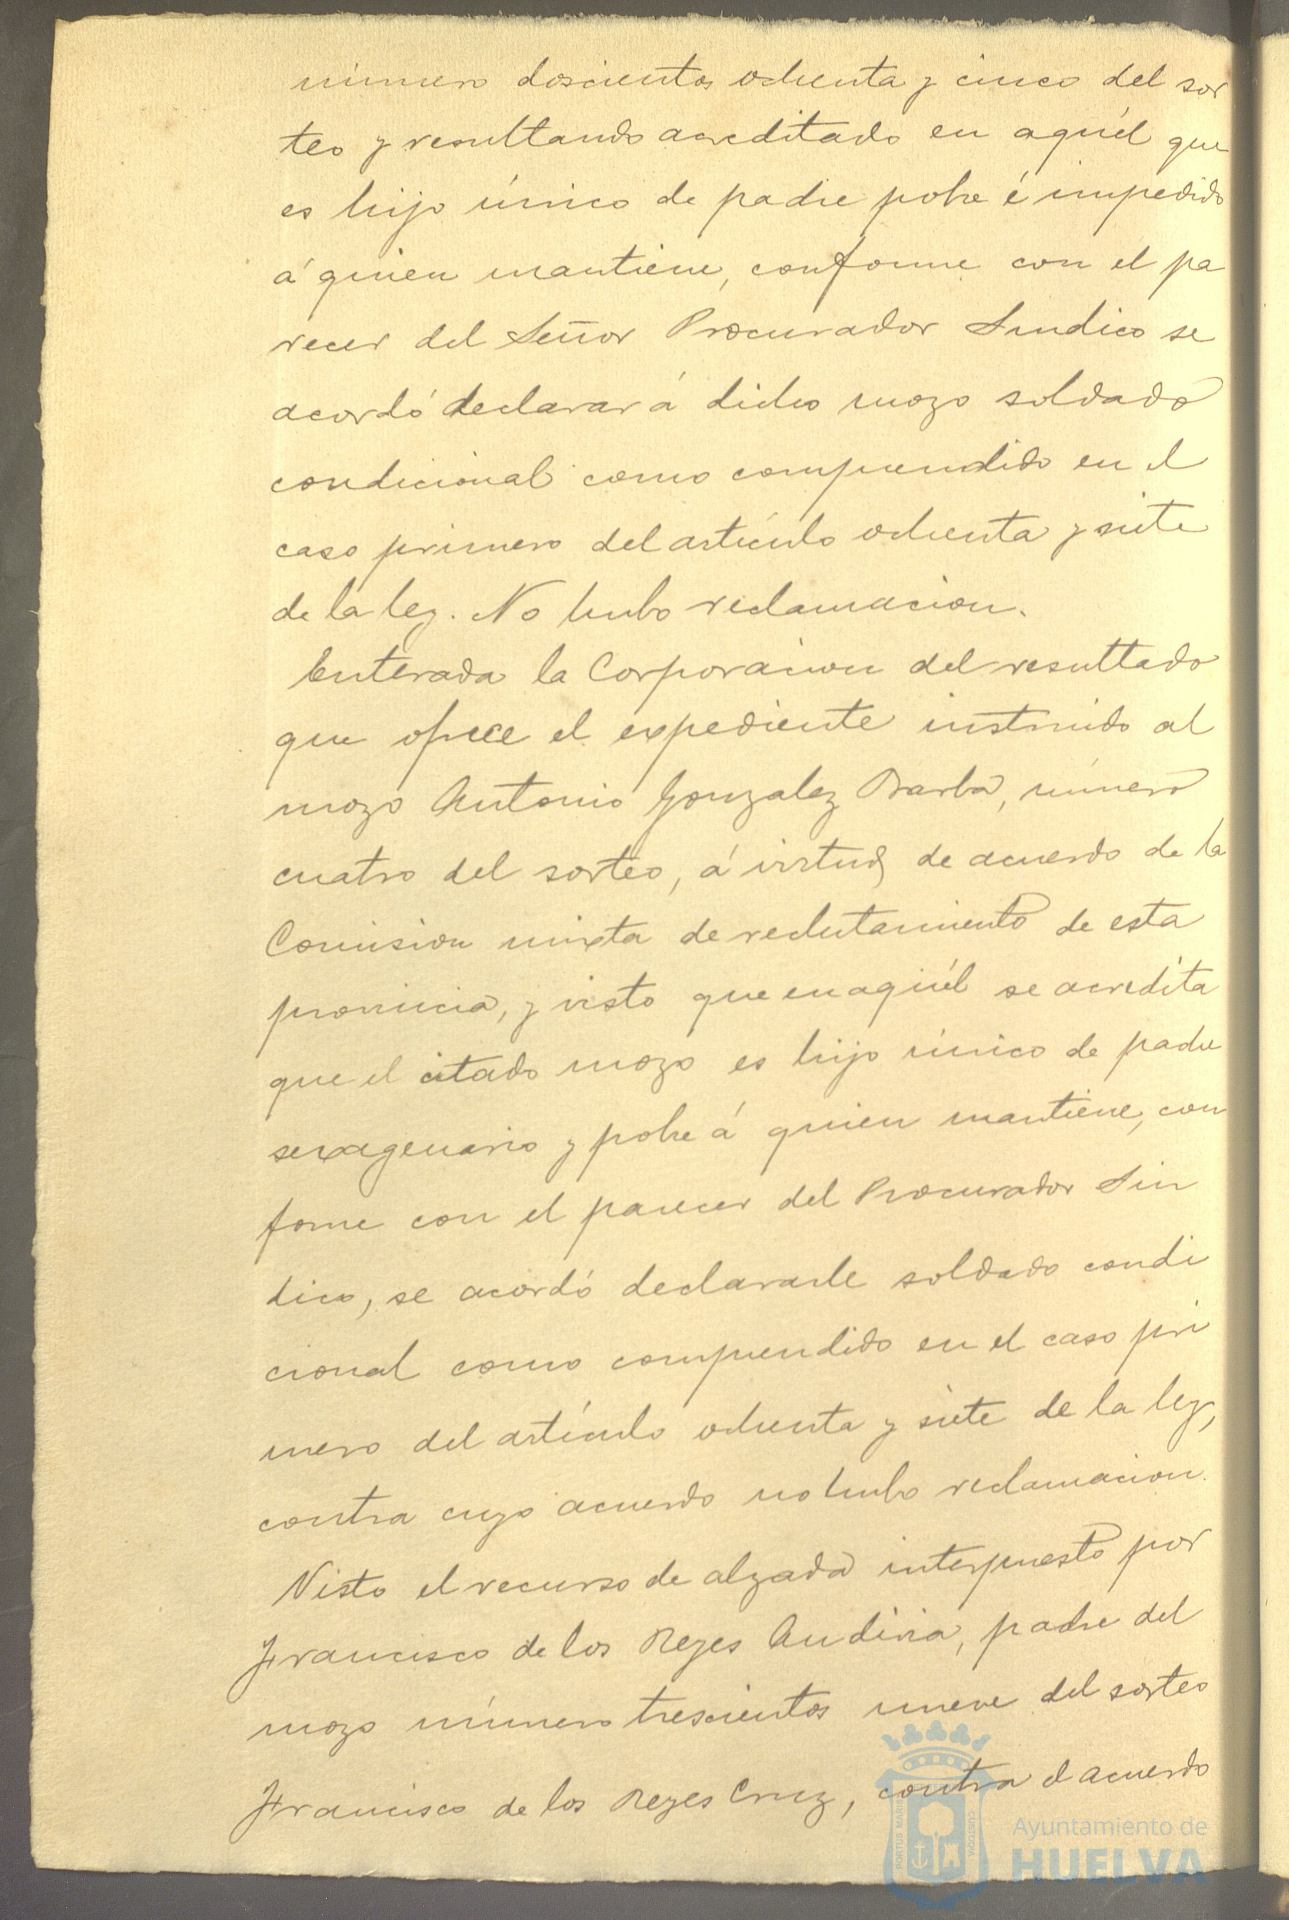 número doscientos ochenta y cinco del sor
teo y resultando acreditado en aquél que
es hijo único de padre pobre é impedido
á quien mantiene, conforme con el pa
recer del Señor Procurador Sindico se
acordó declarar á dicho mozo soldado
condicional como comprendido en el
caso primero del artículo ochenta y siete
de la ley. No hubo reclamacion.
Enterada la Corporacion del resultado
que ofrece el expediente instruido al
mozo Antonio Gonzalez Barba, número
cuatro del sorteo, á virtud de acuerdo de la
Comision mixta de reclutamiento de esta
provincia, y visto que en aquél se acredita
que el citado mozo es hijo único de padre
sexagenario y pobre á quien mantiene, con
forme con el parecer del Procurador Sin
dico, se acordó declararle soldado condi
cional como comprendido en el caso pri
mero del artículo ochenta y siete de la ley,
contra cuyo acuerdo no hubo reclamacion.
Visto el recurso de alzada interpuesto por
Francisco de los Reyes Andivia, padre del
mozo número trescientos nueve del sorteo
Francisco de los Reyes Cruz, contra el acuerdo
Ayuntamiento de
HUELVA